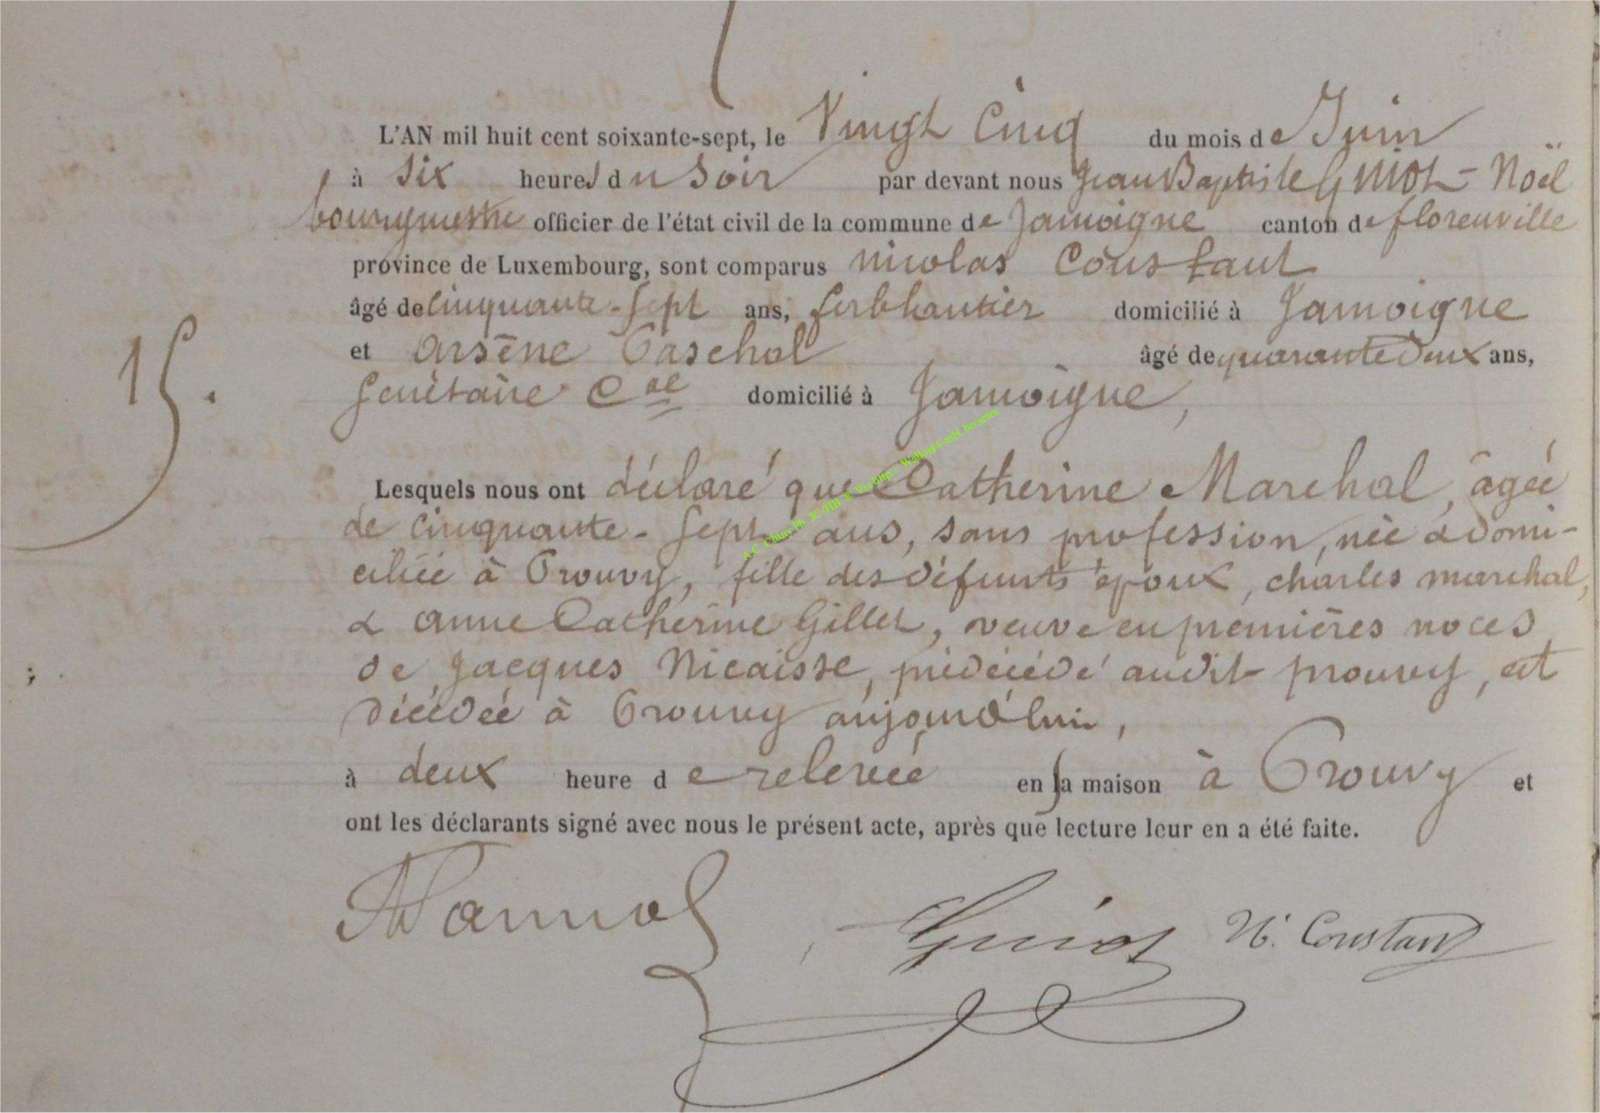 L'AN mil huit cent soixante-sept, le Vingt Cinq du mois de Juin
à six heures du soir par devant nous Jean Baptiste Guiot-Noël
bourgmestre officier de l'état civil de la commune de Jamoigne canton de florenville
province de Luxembourg, sont comparus nicolas Constant
âgé de cinquante-sept ans, ferblantier domicilié à Jamoigne
et Arsène Paschal âgé de quarante deux ans,
15.
secrétaire Cal domicilié à Jamoigne,
Lesquels nous ont déclaré que Catherine Marchal, âgée
de cinquante-sept ans, sans profession, née & domi-
ciliée à Prouvy, fille des défunts époux, charles marchal,
& anne Catherine Gillet, veuve en premières noces
de Jacques Nicaisse, prédécédé audit prouvy, est
décédée à Prouvy aujourd'hui,
à deux heure de relevée en sa maison à Prouvy et
ont les déclarants signé avec nous le présent acte, après que lecture leur en a été faite.
Guiot N. Constant